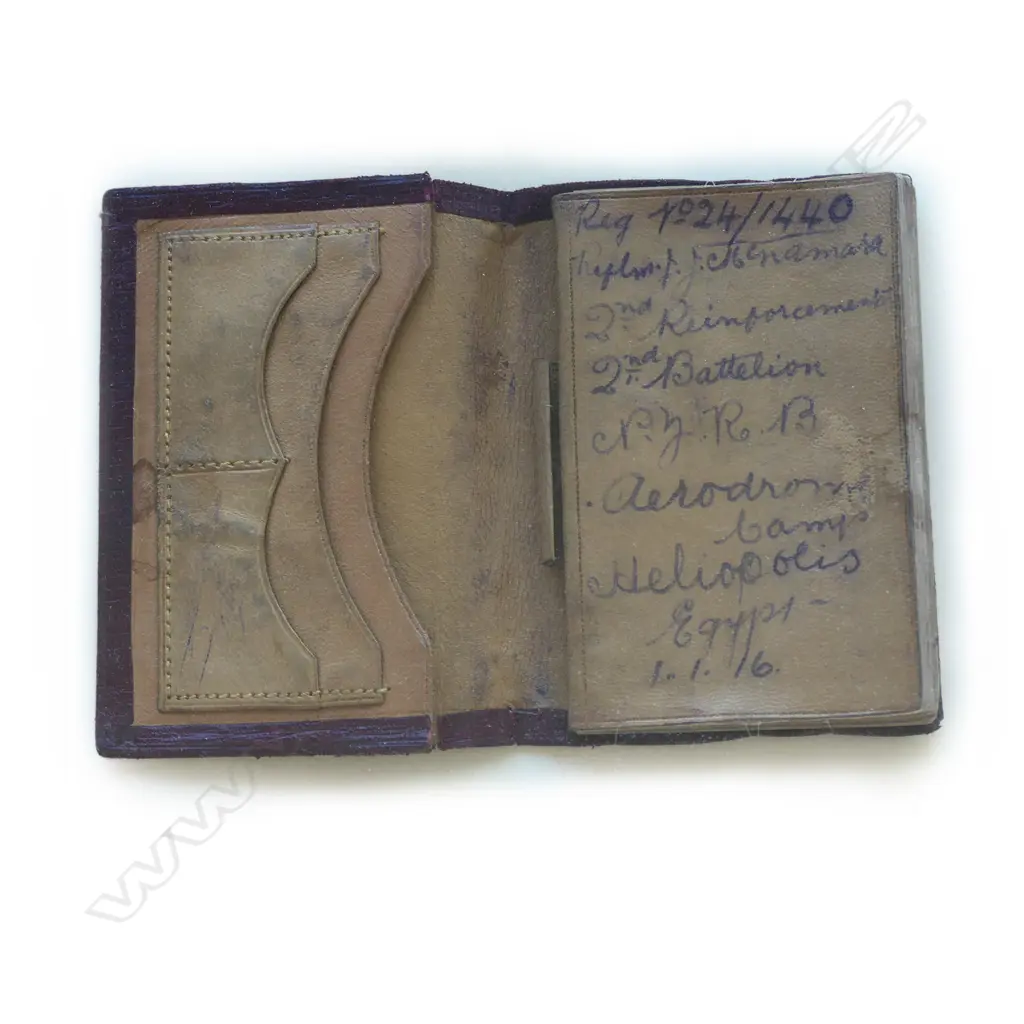 Reg Nº 24/1440
J. J. McNamara
2nd Reinforcements
2nd Battelion
N. Z. R. B
Aerodrome
Camp
Heliopolis
Egypt -
1. 1. 16.